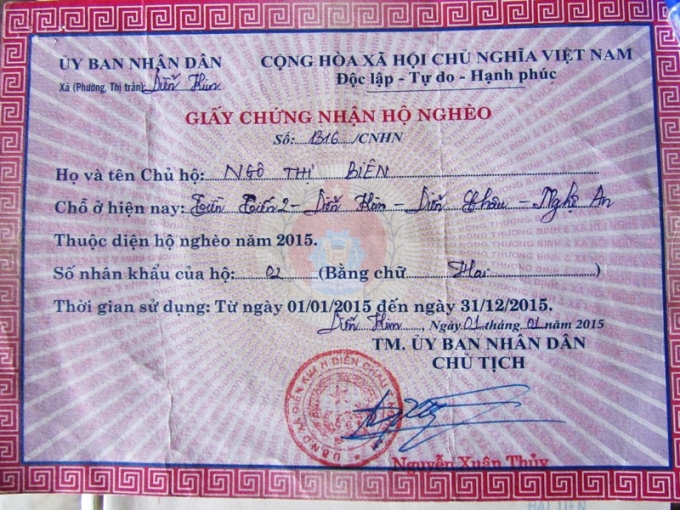 ỦY BAN NHÂN DÂN
Xã (Phường, Thị trấn) Diễn Kim
CỘNG HÒA XÃ HỘI CHỦ NGHĨA VIỆT NAM
Độc lập - Tự do - Hạnh phúc
GIẤY CHỨNG NHẬN HỘ NGHÈO
Số: 1316 /CNHN
Họ và tên Chủ hộ: NGÔ THỊ BIÊN
Chỗ ở hiện nay: Tiến 2 - Diễn Kim - Diễn Châu - Nghệ An
Thuộc diện hộ nghèo năm 2015.
Số nhân khẩu của hộ: 02 (Bằng chữ Hai )
Thời gian sử dụng: Từ ngày 01/01/2015 đến ngày 31/12/2015.
Diễn Kim, Ngày 01 tháng 01 năm 2015
TM. ỦY BAN NHÂN DÂN
CHỦ TỊCH
U.B.N.D XÃ DIỄN KIM H.DIỄN CHÂU
Nguyễn Xuân Thủy